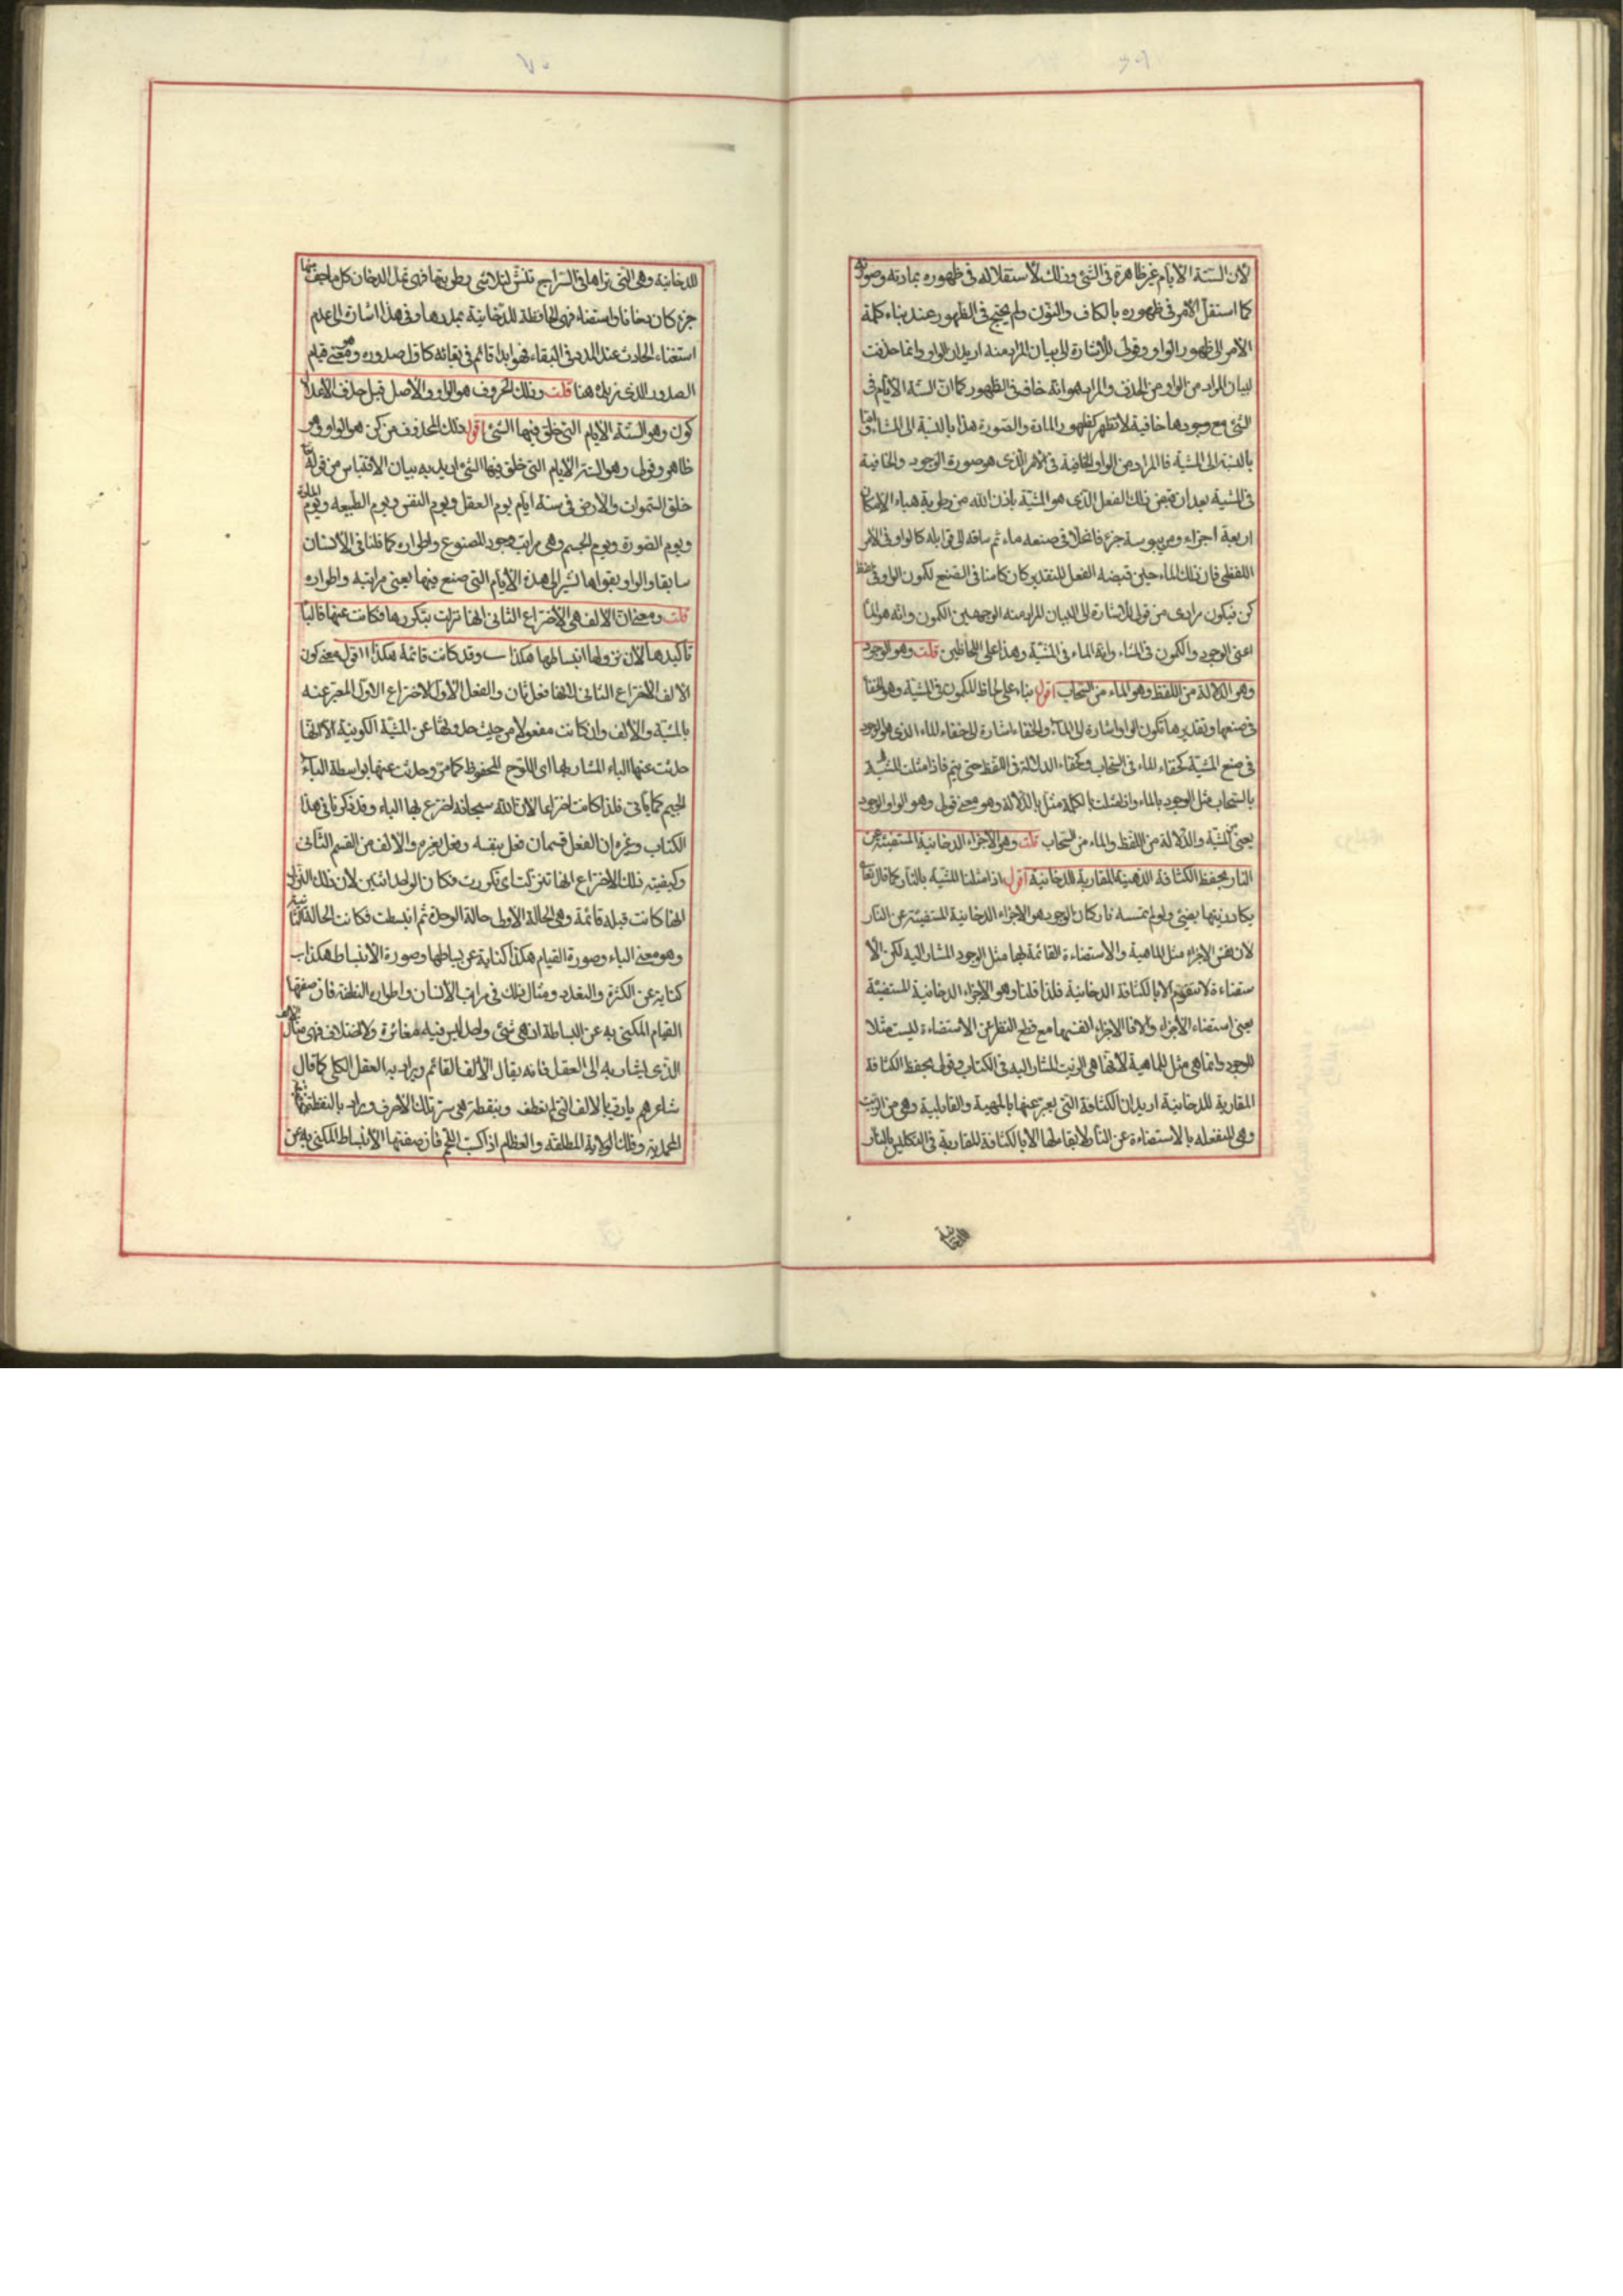 لان الستة الايام غير ظاهرة فى الشئ وذلك لاستقلاله فى ظهوره بمادته وصورته
كما استقل الامر فى ظهوره بالكاف والنون ولم يحتج فى الظهور عند بناء كلمة
الامر الى ظهور الواو وقولى للاشارة الى بيان المراد منه اريد ان الواو وانما حذفت
لبيان المراد من الواو من الحذف والمراد هو انه خاف فى الظهور كما ان الستة الايام فى
الشئ مع وجودها خافية لا تظهر كظهور المادة والصورة هذا بالنسبة الى المشاء واما
بالنسبة الى المشية فالمراد من الواو الخافية فى الامر الذى هو صورة الوجود والخافية
فى المشية بعد ان قبض ذلك الفعل الذى هو المشية باذن الله من رطوبة هباء الامكان
اربعة اجزاء ومن يبوسة جزء فانحلا فى صنعه ماء ثم ساقه الى قوابله كالواو فى الامر
اللفظى فان ذلك الماء حين قبضه الفعل للتقدير كان كامنا فى الصنع لكون الواو فى لفظ
كن فيكون مرادى من قولى للاشارة الى البيان المراد منه الوجهين الكون وانه هو الماء
اعنى الوجود والكون فى المشاء وانه الماء فى المشية وهذا على اللحاظين قلت وهو الوجود
وهو الدلالة من اللفظ وهو الماء من السحاب اقول بناء على لحاظ الكون فى المشية وهو الخفاء
فى صنعها وتقديرها تكون الواو اشارة الى الماء والخفاء اشارة الى خفاء الماء الذى هو الوجود
فى صنع المشية كخفاء الماء فى السحاب وكخفاء الدلالة فى اللفظ حتى يتم فاذا مثلت المشية
بالسحاب مثل الوجود بالماء واذا مثلت بالكلمة مثل بالدلالة وهو معنى قولى وهو الواو الوجود
يعنى من المشية والدلالة من اللفظ والماء من السحاب قلت وهو الاجزاء الدخانية المستضيئة عن
النار بحفظ الكثافة الدهنية المقاربة للدخانية اقول اذا مثلنا المشية بالنار كما قال تعالى
يكاد زيتها يضئ ولو لم تمسسه نار كان الوجود هو الاجزاء الدخانية المستضيئة عن النار
لان نفس الاجزاء مثل الماهية والاستضاءة القائمة بها مثل الوجود المشار اليه لكن الا
ستضاءة لا تتقوم الا بالكثافة الدخانية فلذا قلنا وهو الاجزاء الدخانية المستضيئة
يعنى استضاء الاجزاء والا فالاجزاء انفسها مع قطع النظر عن الاستضاءة ليست مثلا
للوجود وانما هى مثل للماهية لانها هى الزيت المشار اليه فى الكتاب وقولى بحفظ الكثافة
المقاربة للدخانية اريد ان الكثافة التى يعبر عنها بالمهية والقابلية وهى من الزيت
وهى المنفعلة بالاستضاءة عن النار لا بقاء لها الا بالكثافة المقاربة فى التكليس بالنار
للدخانية
للدخانية وهى التى تراها فى السراج تنش لتلاشى رطوبتها فهى تمد الدخان كل ما جف منها
جزء كان دخانا واستضاء فهى الحافظة للدخانية بمددها وفى هذا اشارة الى عدم
استغناء الحادث عند المدد فى البقاء فهو ابدا قائم فى بقائه كاول صدوره وهو معنى قيام
الصدور الذى نريد هنا قلت وذلك الحروف هو الواو والاصل قبل حذف الاعلال
كون وهو الستة الايام التى خلق فيها الشئ اقول ذلك المحذوف من كن هو الواو وهو
ظاهر وقولى وهو الستة الايام التى خلق فيها الشئ اريد به بيان الاقتباس من قوله تعالى
خلق السموات والارض فى ستة ايام يوم العقل ويوم النفس ويوم الطبيعه ويوم المادة
ويوم الصورة ويوم الجسم وهى مراتب وجود المصنوع واطواره كما قلنا فى الانسان
سابقا والواو بقواها تشير الى هذه الايام التى صنع فيها يعنى مراتبه واطواره
قلت ومعنى ان الالف هى الاختراع الثانى انها نزلت بتكررها فكانت عنها فالباء
تاكيدها لان نزولها انبساطها هكذا ـــ وقد كانت قائمة هكذا ا اقول معنى كون
الالف الاختراع الثانى انها فعل ثان والفعل الاول الاختراع الاول المعبر عنه
بالمشية والالف وان كانت مفعولا من حيث حدوثها عن المشية الكونية الا انها
حدثت عنها الباء المشار بها الى اللوح المحفوظ كما مر وحدثت عنها بواسطة الباء
الجيم كما ياتى فلذا كانت اختراعا لان الله سبحانه اخترع بها الباء وقد ذكرنا فى هذا
الكتاب وغيره ان الفعل قسمان فعل بنفسه وفعل بغيره والالف من القسم الثانى
وكيفيته ذلك الاختراع انها تنزلت اى تكررت فكان الواحد اثنين لان ذلك النزول
انها كانت قبله قائمة وهى الحالة الاولى حالة الوحدة ثم انبسطت فكانت الحالة الثانية
وهو معنى الباء وصورة القيام هكذا ا كناية عن بساطها وصورة الانبساط هكذا ب
كناية عن الكثرة والتعدد ومثال ذلك فى مراتب الانسان واطواره النطفة فان صفتها
القيام المكنى به عن البساطة اذ هى شئ واحد ليس فيه مغائرة ولا اختلاف فهى مثال
الذى يشار به الى العقل فانه يقال الالف القائم ويراد به العقل الكلى كما قال
شاعرهم يا رب بالالف التى لم تعطف وبنقطة هى سر تلك الاحرف ويراد بالنقطة
المحمدية وفلك الولاية المطلقة والعظام اذا كسيت اللحم فان صفتها الانبساط المكنى به عن